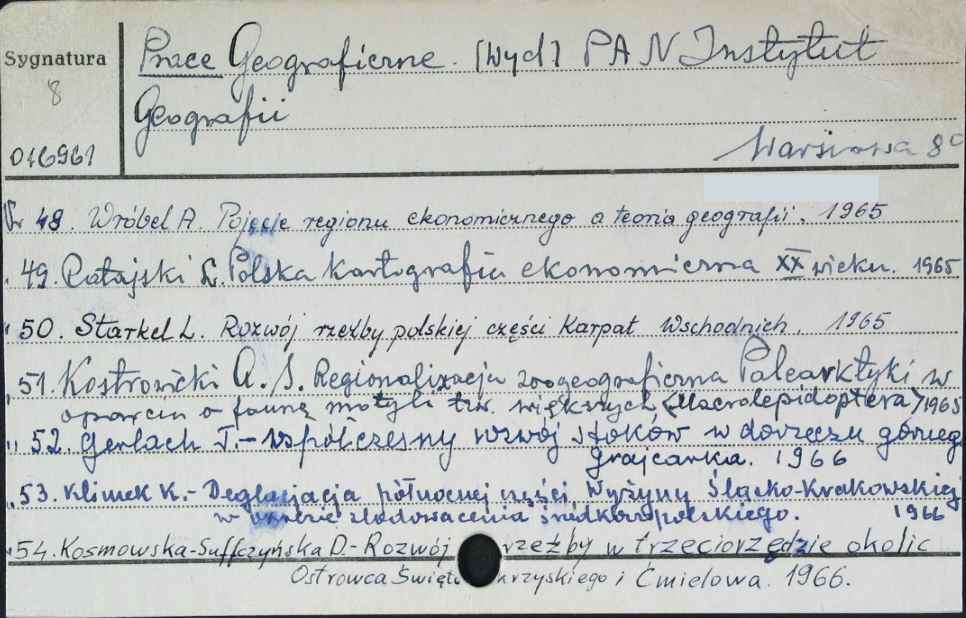 Sygnatura
8
016961
Prace Geograficzne. [Wyd] PAN Instytut
Geografii
Warszawa 8°
Nr 48. Wróbel A. Pojęcie regionu ekonomicznego a teoria geografii. 1965
" 49. Ratajski L. Polska kartografia ekonomiczna XX wieku. 1965
" 50. Starkel L. Rozwój rzeźby polskiej części Karpat Wschodnich. 1965
" 51. Kostrowicki A. S. Regionalizacja zoogeograficzna Palearktyki w
oparciu o faunę motyli tzw. większych (Macrolepidoptera) 1965
" 52. Gerlach T. - Współczesny rozwój stoków w dorzeczu górnego
Grajcarka. 1966
" 53. Klimek K. - Deglacjacja północnej części Wyżyny Śląsko-Krakowskiej
w okresie zlodowacenia środkowopolskiego. 1966
" 54. Kosmowska-Suffczyńska D. - Rozwój rzeźby w trzeciorzędzie okolic
Ostrowca Świętokrzyskiego i Ćmielowa. 1966.